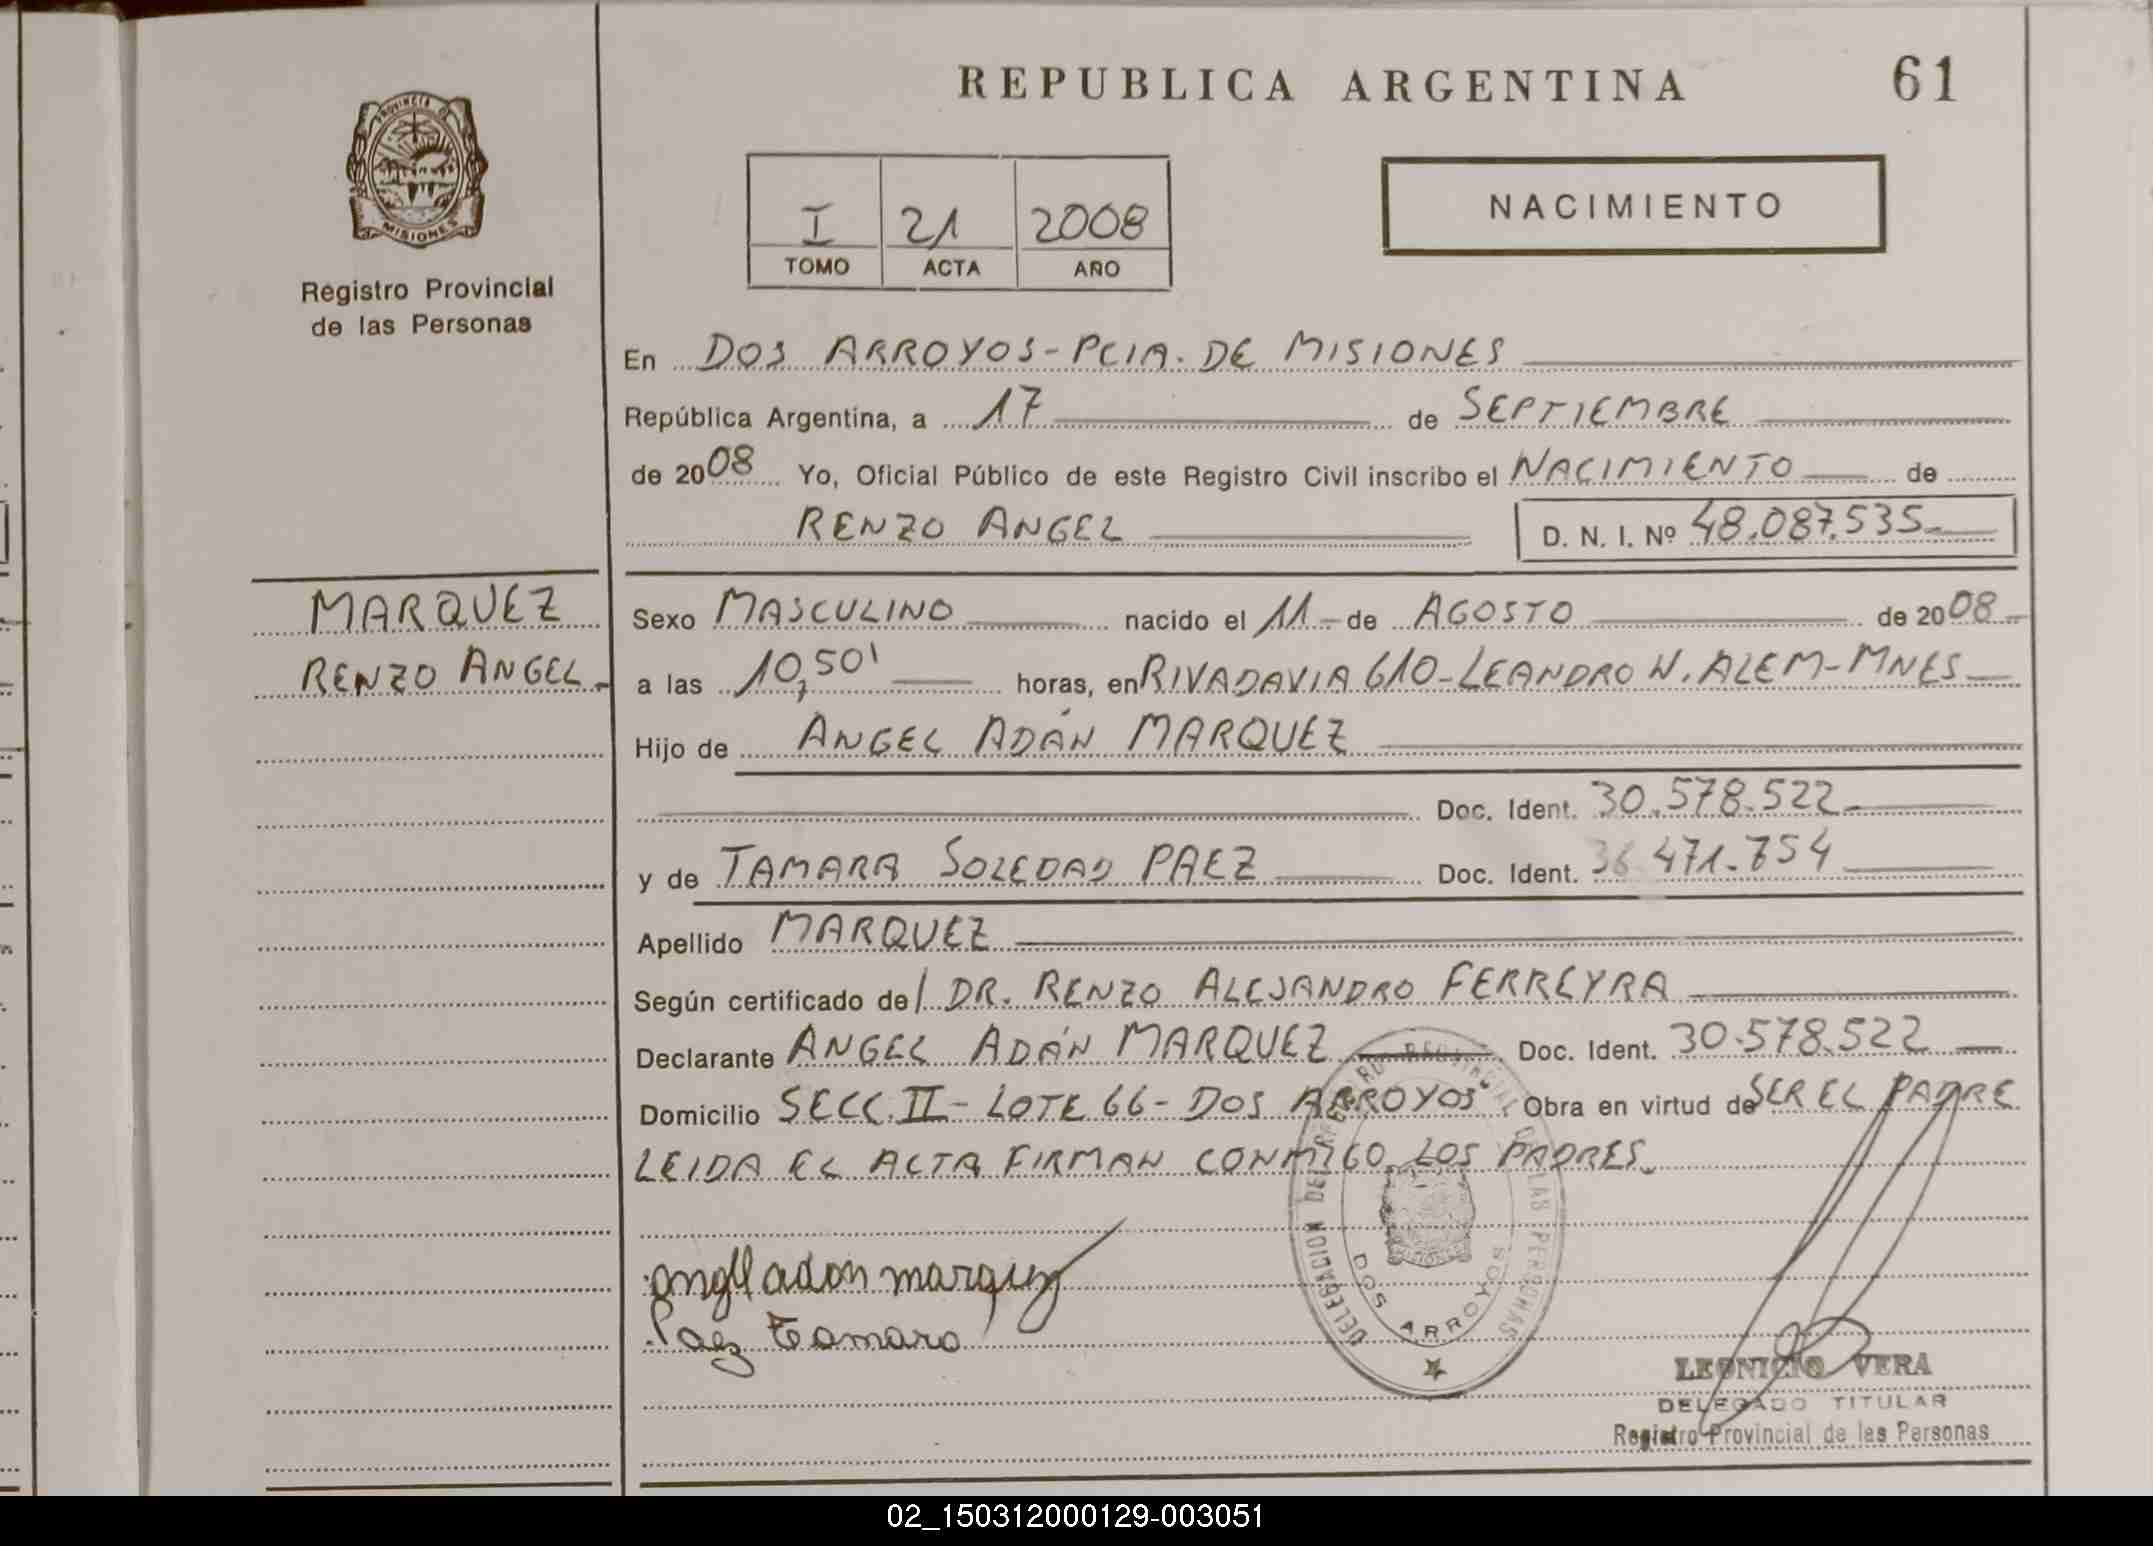 REPUBLICA ARGENTINA
61
PROVINCIA DE
MISIONES
Registro Provincial
de las Personas
I 21 2008
TOMO ACTA AÑO
NACIMIENTO
En DOS ARROYOS - PCIA. DE MISIONES
República Argentina, a 17 de SEPTIEMBRE
de 2008 Yo, Oficial Público de este Registro Civil inscribo el NACIMIENTO de
RENZO ANGEL D. N. I. Nº 48.087.535
MARQUEZ
RENZO ANGEL.
Sexo MASCULINO nacido el 11 de AGOSTO de 2008
a las 10,50' horas, en RIVADAVIA 610 - LEANDRO N. ALEM - MNES
Hijo de ANGEL ADÁN MARQUEZ
Doc. Ident. 30.578.522
y de TAMARA SOLEDAD PAEZ Doc. Ident. 36.471.754
Apellido MARQUEZ
Según certificado de / DR. RENZO ALEJANDRO FERREYRA
Declarante ANGEL ADÁN MARQUEZ Doc. Ident. 30.578.522
Domicilio SECC. II - LOTE 66 - DOS ARROYOS Obra en virtud de SER EL PADRE
LEIDA EL ACTA FIRMAN CONMIGO LOS PADRES.
angel adan marquez
Paez Tamara
DELEGACION DEL REGISTRO PROVINCIAL DE LAS PERSONAS
MISIONES
DOS ARROYOS
LEONICIO VERA
DELEGADO TITULAR
Registro Provincial de las Personas
02_150312000129-003051